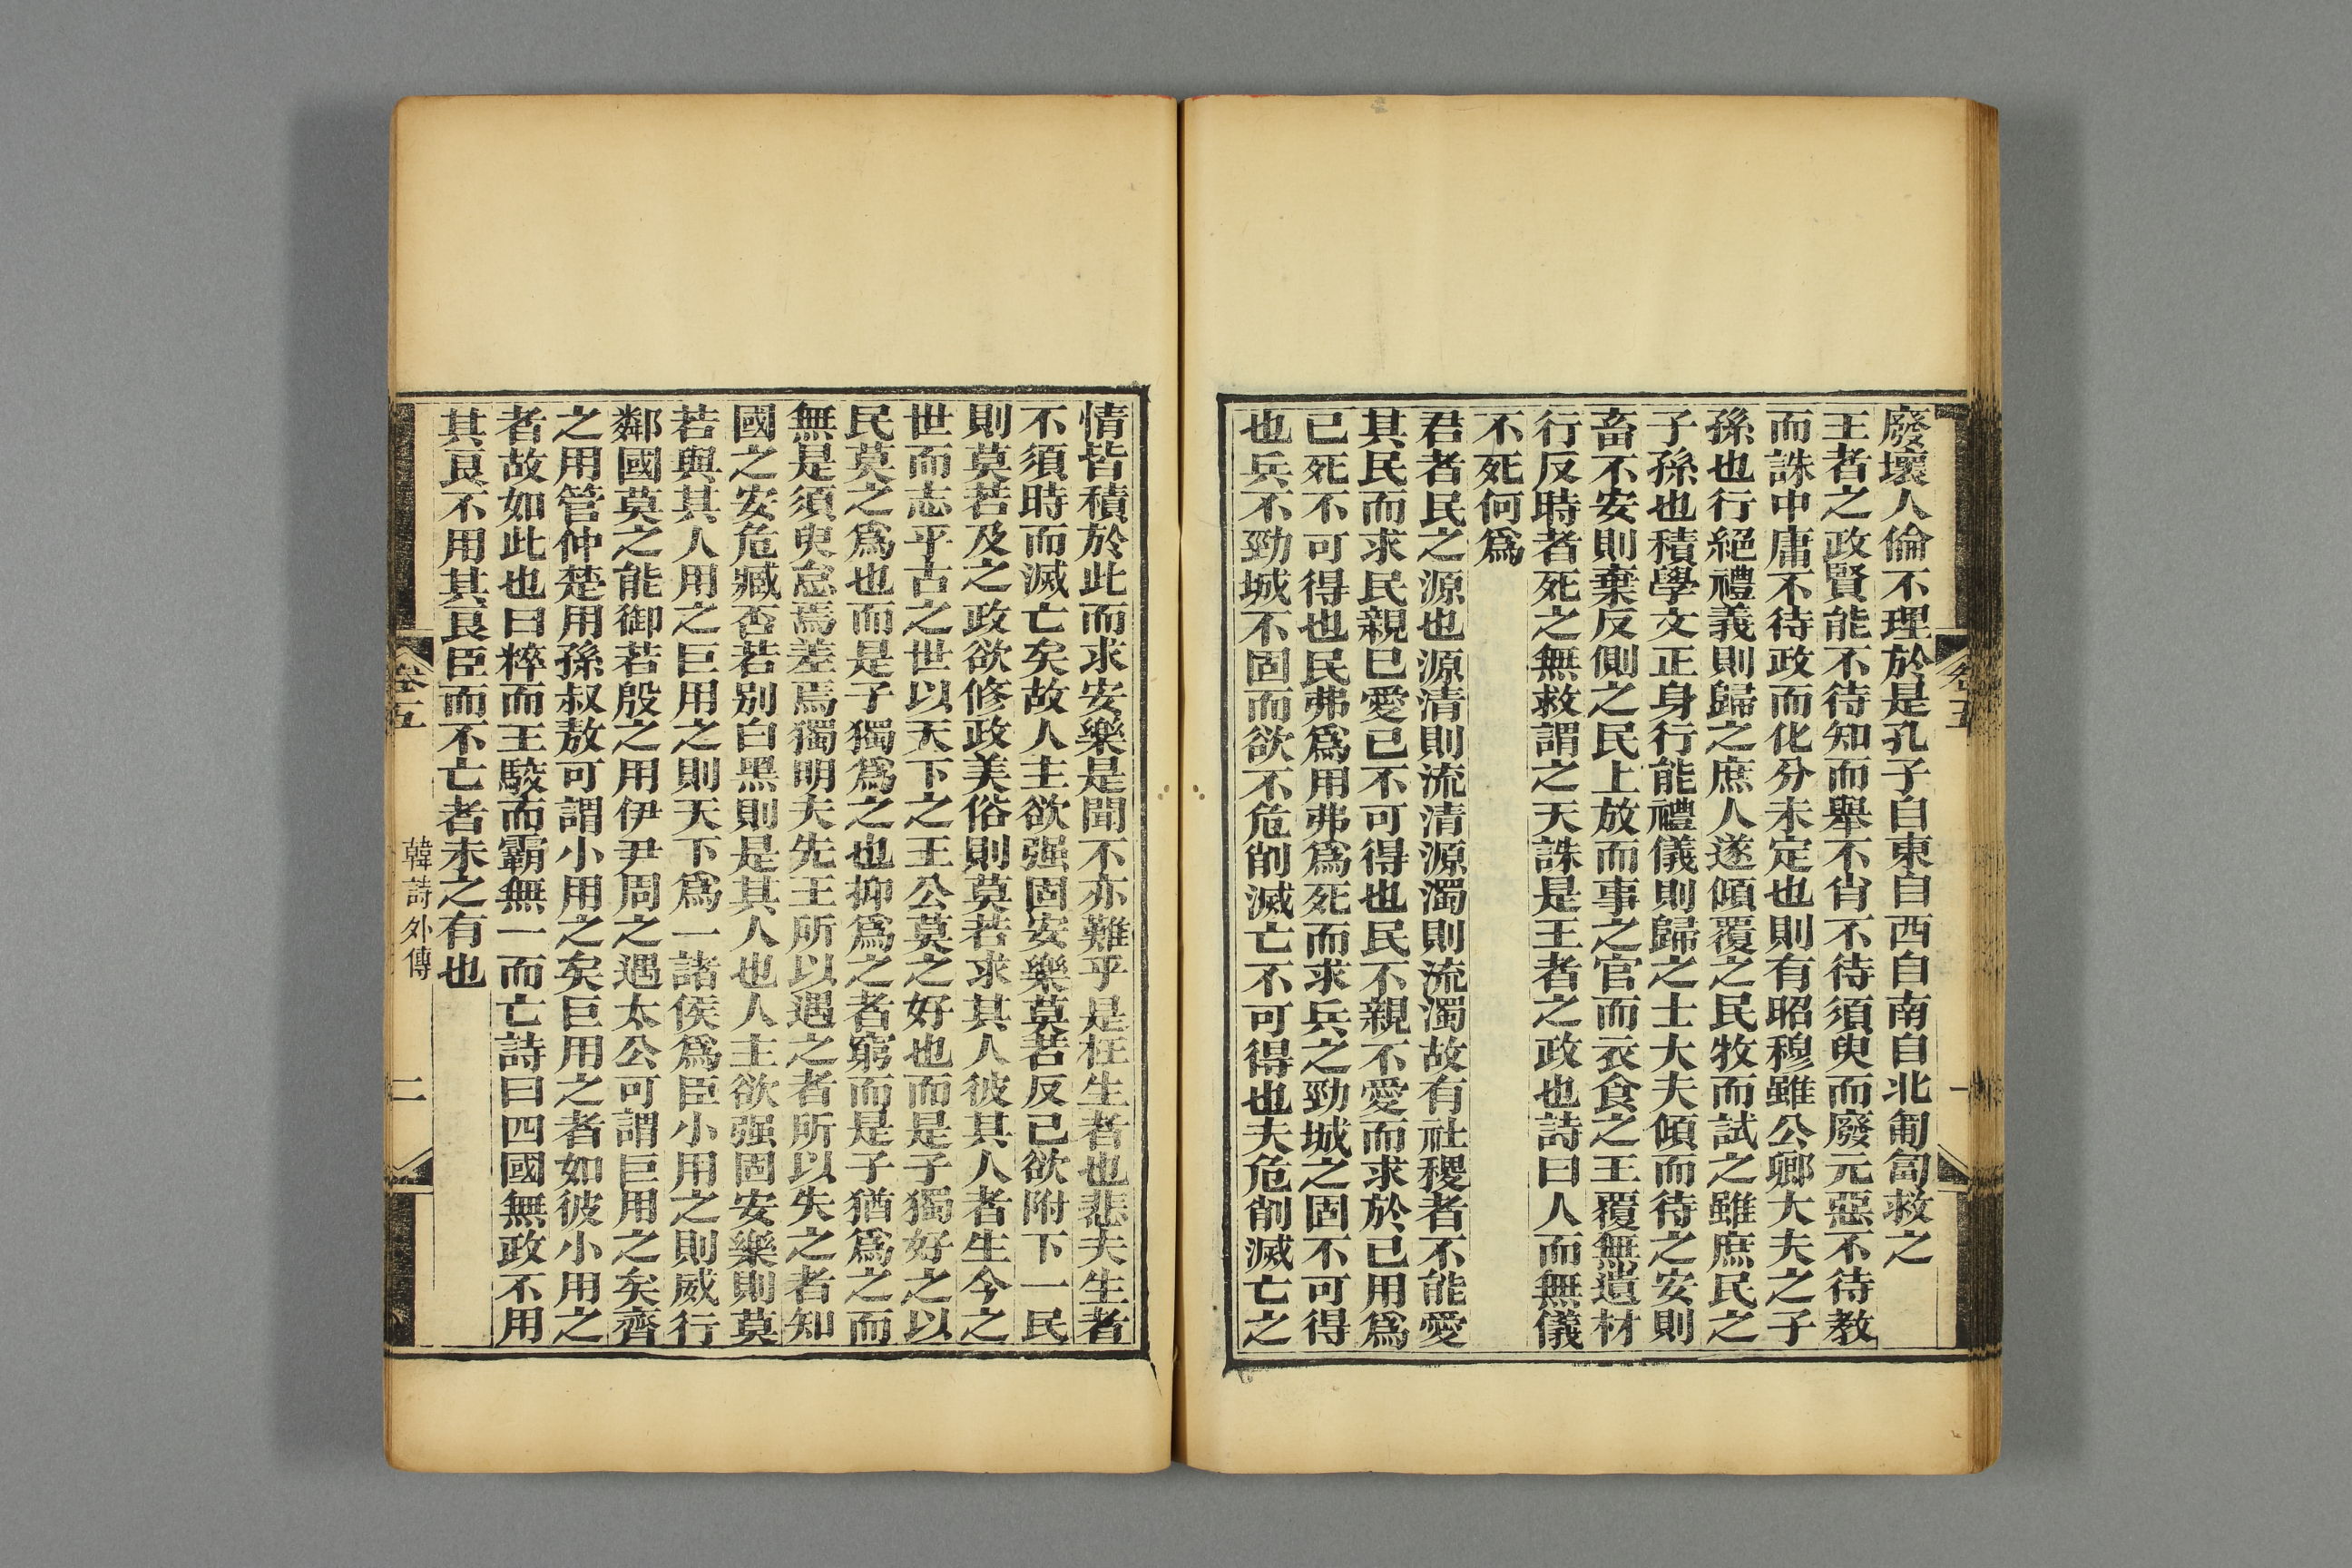 廢壞人倫不理於是孔子自東自西自南自北匍匐救之
王者之政賢能不待知而舉不肖不待須臾而廢元惡不待教
而誅中庸不待政而化分未定也則有昭穆雖公卿大夫之子
孫也行絕禮義則歸之庶人遂傾覆之民牧而試之雖庶民之
子孫也積學文正身行能禮儀則歸之士大夫傾而待之安則
畜不安則棄反側之民上放而事之官而衣食之王覆無遺材
行反時者死之無救謂之天誅是王者之政也詩曰人而無儀
不死何爲
君者民之源也源清則流清源濁則流濁故有社稷者不能愛
其民而求民親已愛已不可得也民不親不愛而求於已用爲
已死不可得也民弗爲用弗爲死而求兵之勁城之固不可得
也兵不勁城不固而欲不危削滅亡不可得也夫危削滅亡之
卷五
一
情皆積於此而求安樂是聞不亦難乎是枉生者也悲夫生者
不須時而滅亡矣故人主欲强固安樂莫若反已欲附下一民
則莫若及之政欲修政美俗則莫若求其人彼其人者生今之
世而志乎古之世以天下之王公莫之好也而是子獨好之以
民莫之爲也而是子獨爲之也抑爲之者窮而是子猶爲之而
無是須臾怠焉差焉獨明夫先王所以遇之者所以失之者知
國之安危臧否若別白黑則是其人也人主欲强固安樂則莫
若與其人用之巨用之則天下爲一諸侯爲臣小用之則威行
鄰國莫之能御若殷之用伊尹周之遇太公可謂巨用之矣齊
之用管仲楚用孫叔敖可謂小用之矣巨用之者如彼小用之
者故如此也曰粹而王駮而霸無一而亡詩曰四國無政不用
其良不用其良臣而不亡者未之有也
卷五
韓詩外傳
二